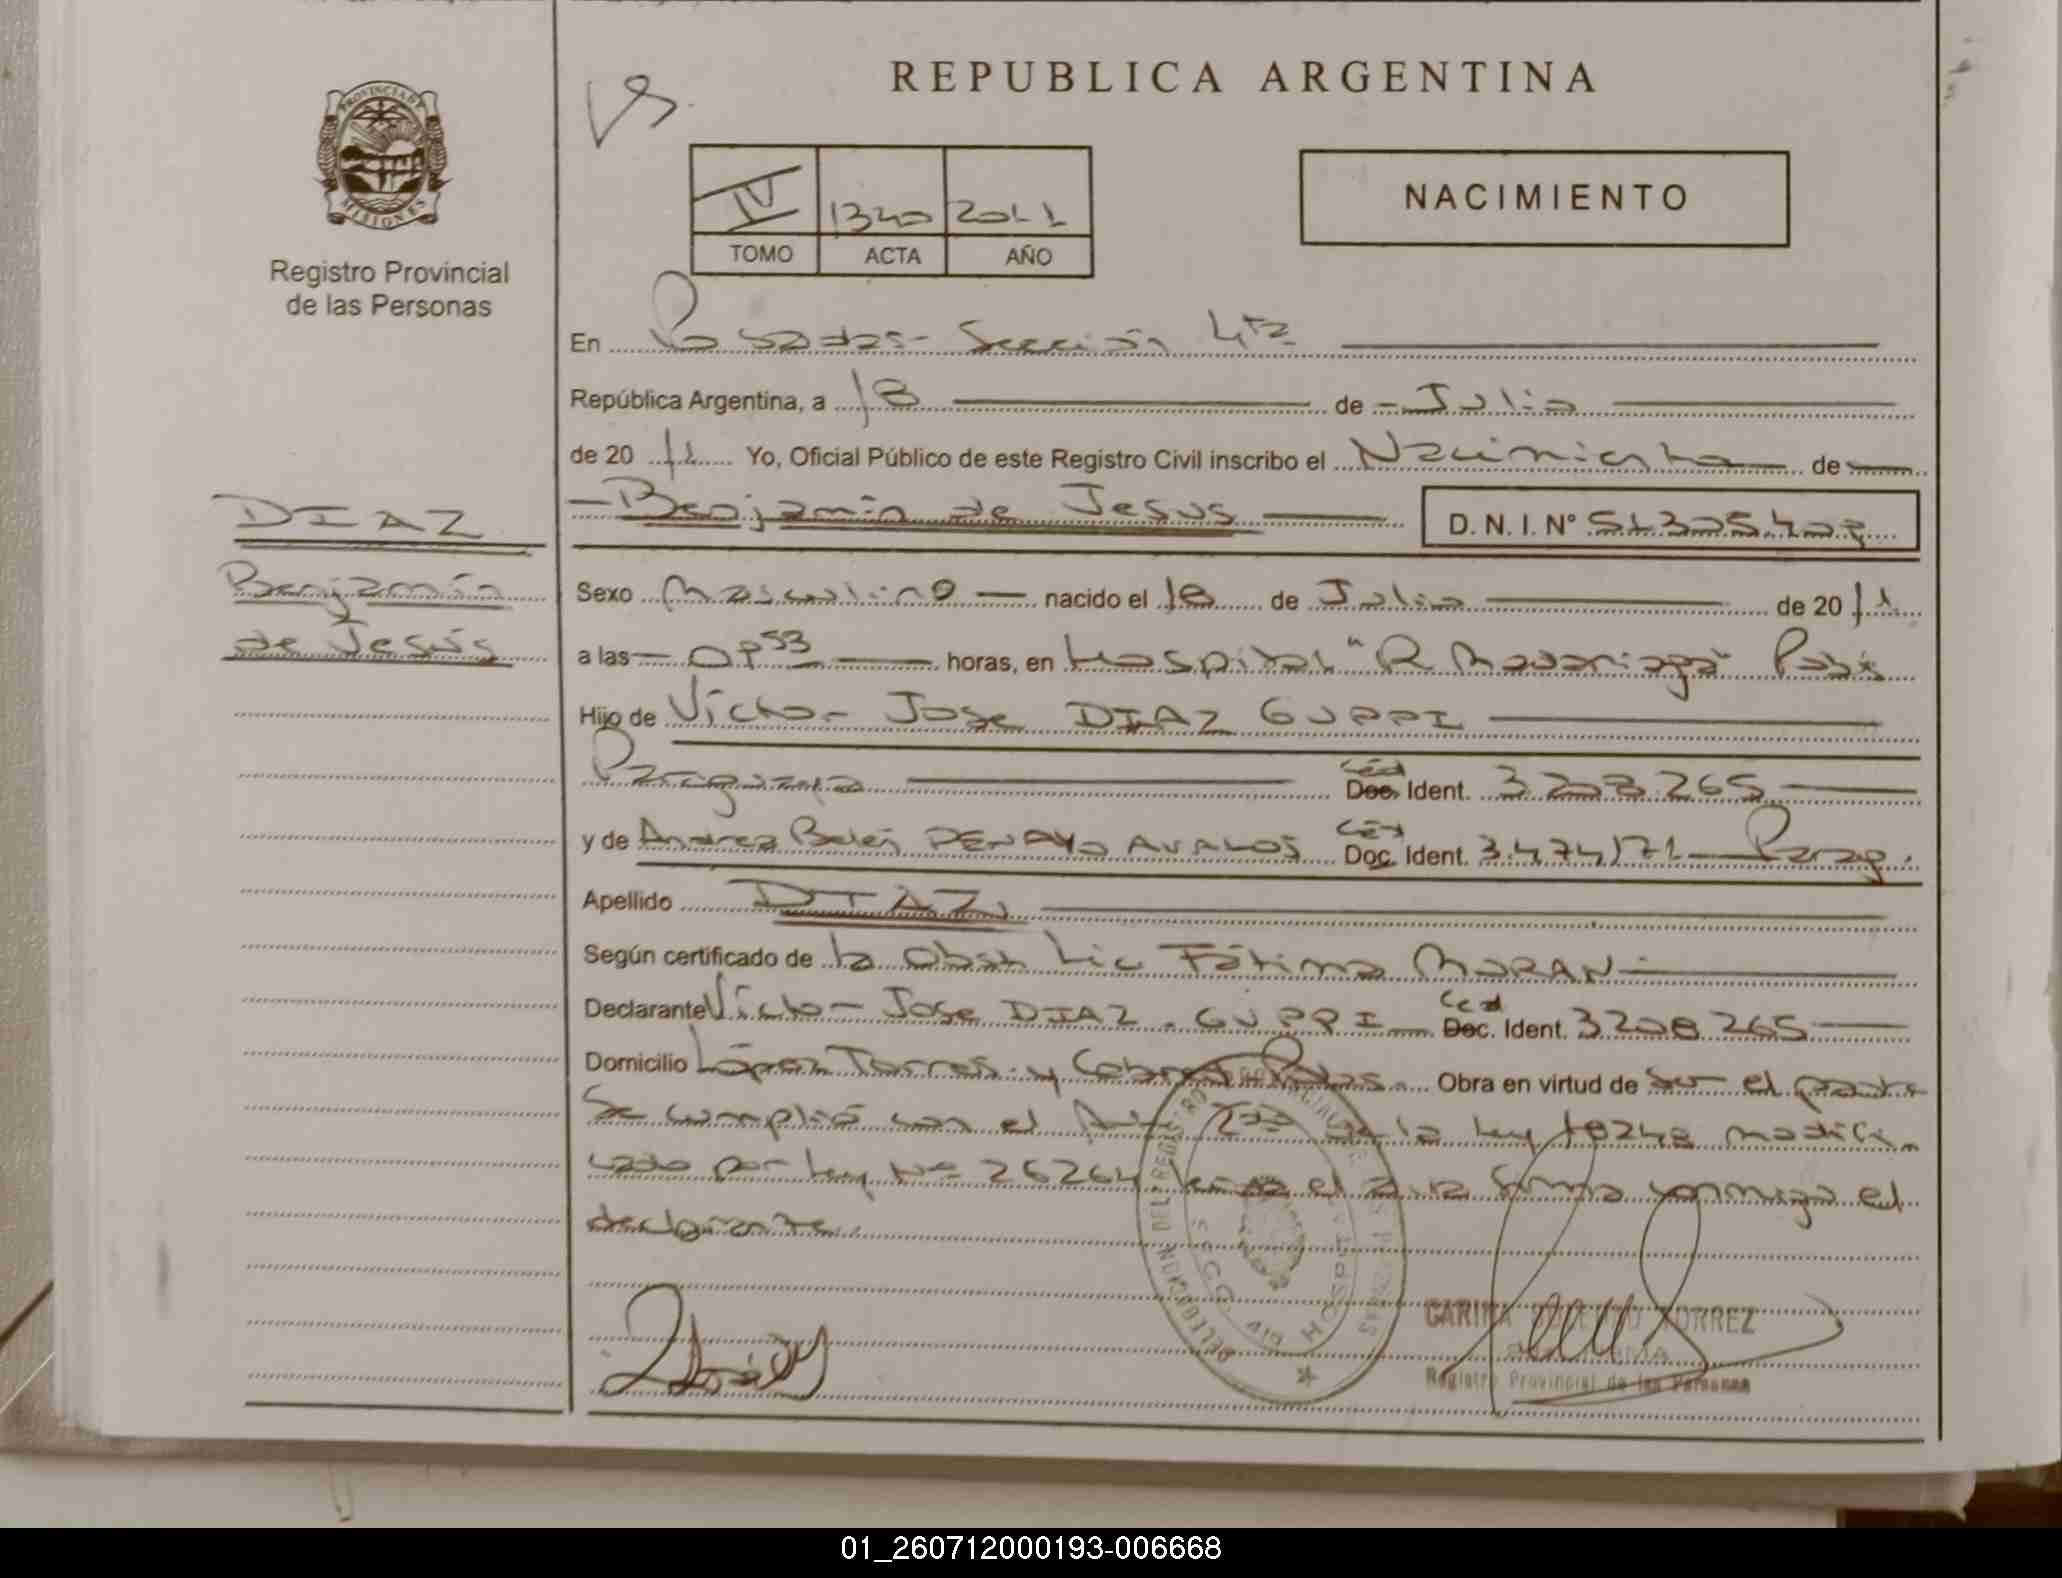 REPUBLICA ARGENTINA
PROVINCIA DE
MISIONES
Registro Provincial
de las Personas
IV 1340 2011
TOMO ACTA AÑO
NACIMIENTO
En Posadas- Sección 4ta
República Argentina, a 18 de Julio
de 2011 Yo, Oficial Público de este Registro Civil inscribo el Nacimiento de
DIAZ
Benjamín
de Jesús
Benjamín de Jesus D.N.I. Nº
Sexo Masculino nacido el 18 de Julio de 2011
a las horas, en Hospital "R Madariaga"
Hijo de Víctor Jose DIAZ GUPPI
Céd Doc. Ident.
y de Andrea Belén PENAYO AVALOS Céd Doc. Ident. 3.474171 Parag.
Apellido DIAZ
Según certificado de la Obst Lic Fátima MORAN
Declarante Víctor Jose DIAZ GUPPI Ced Doc. Ident. 3208265
Domicilio López Torres y Obra en virtud de ser el padre
Se cumplió con el de la Ley 18248 modifi
cado por Ley Nº 26264 el acta firma conmigo el
declarante.
DELEGACION DEL REGISTRO PROVINCIAL DE LAS PERSONAS
HOSPITAL
CARINA TORREZ
Registro Provincial de las Personas
01_260712000193-006668